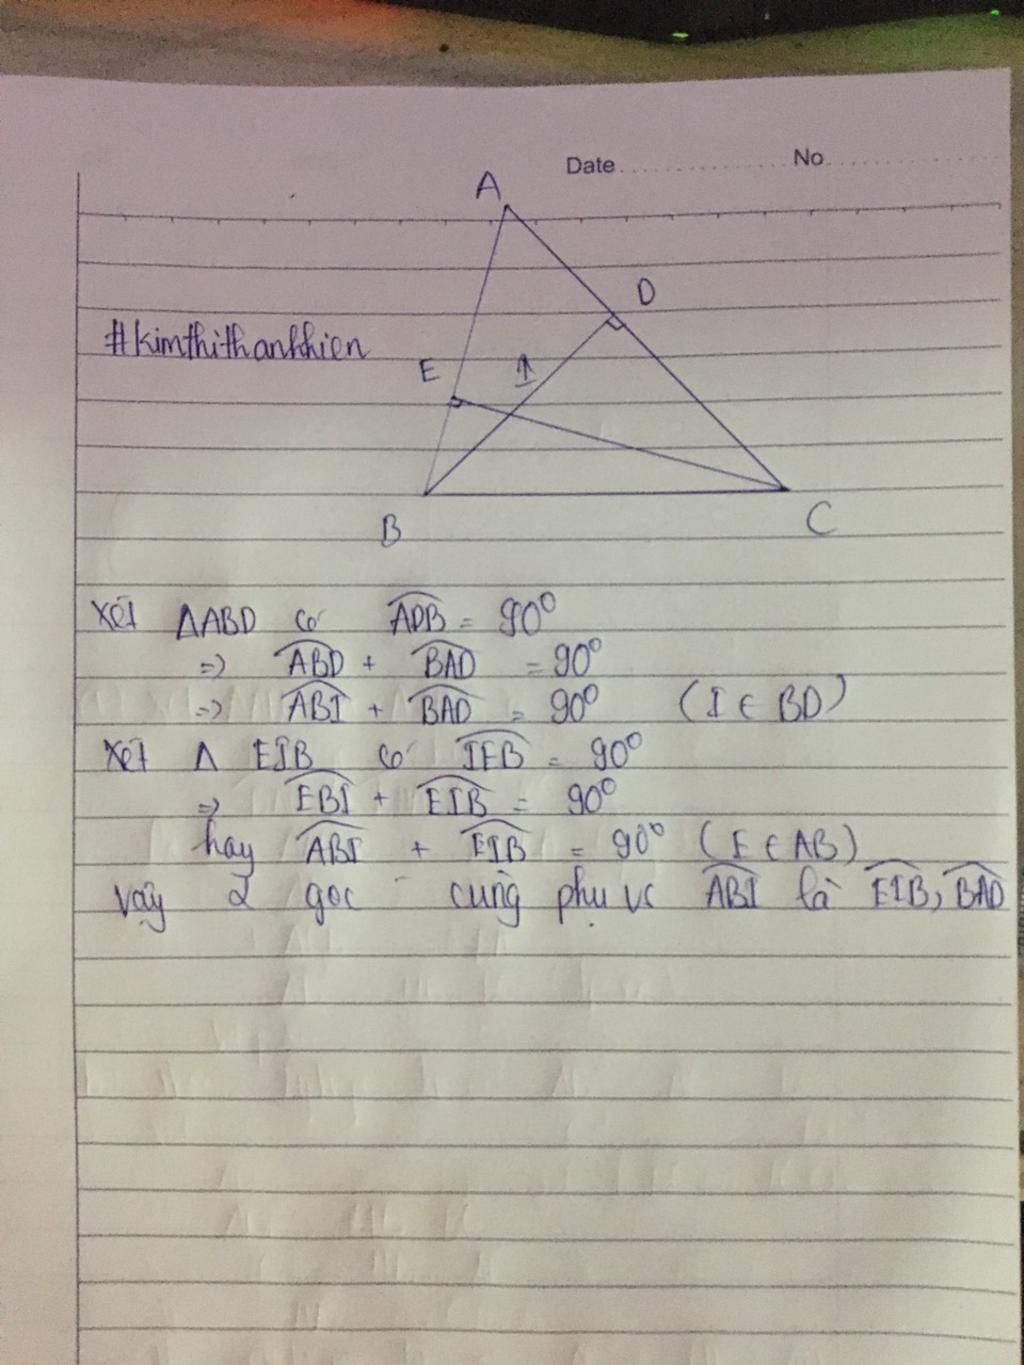 Date No
A
D
#kimthithanhhien
E I
B C
Xét ΔABD có ADB = 90°
=> ABD + BAD = 90°
=> ABI + BAD = 90° (I ∈ BD)
Xét Δ EIB có IEB = 90°
=> EBI + EIB = 90°
hay ABI + EIB = 90° (E ∈ AB)
Vậy 2 góc cùng phụ vs ABI là EIB, BAD